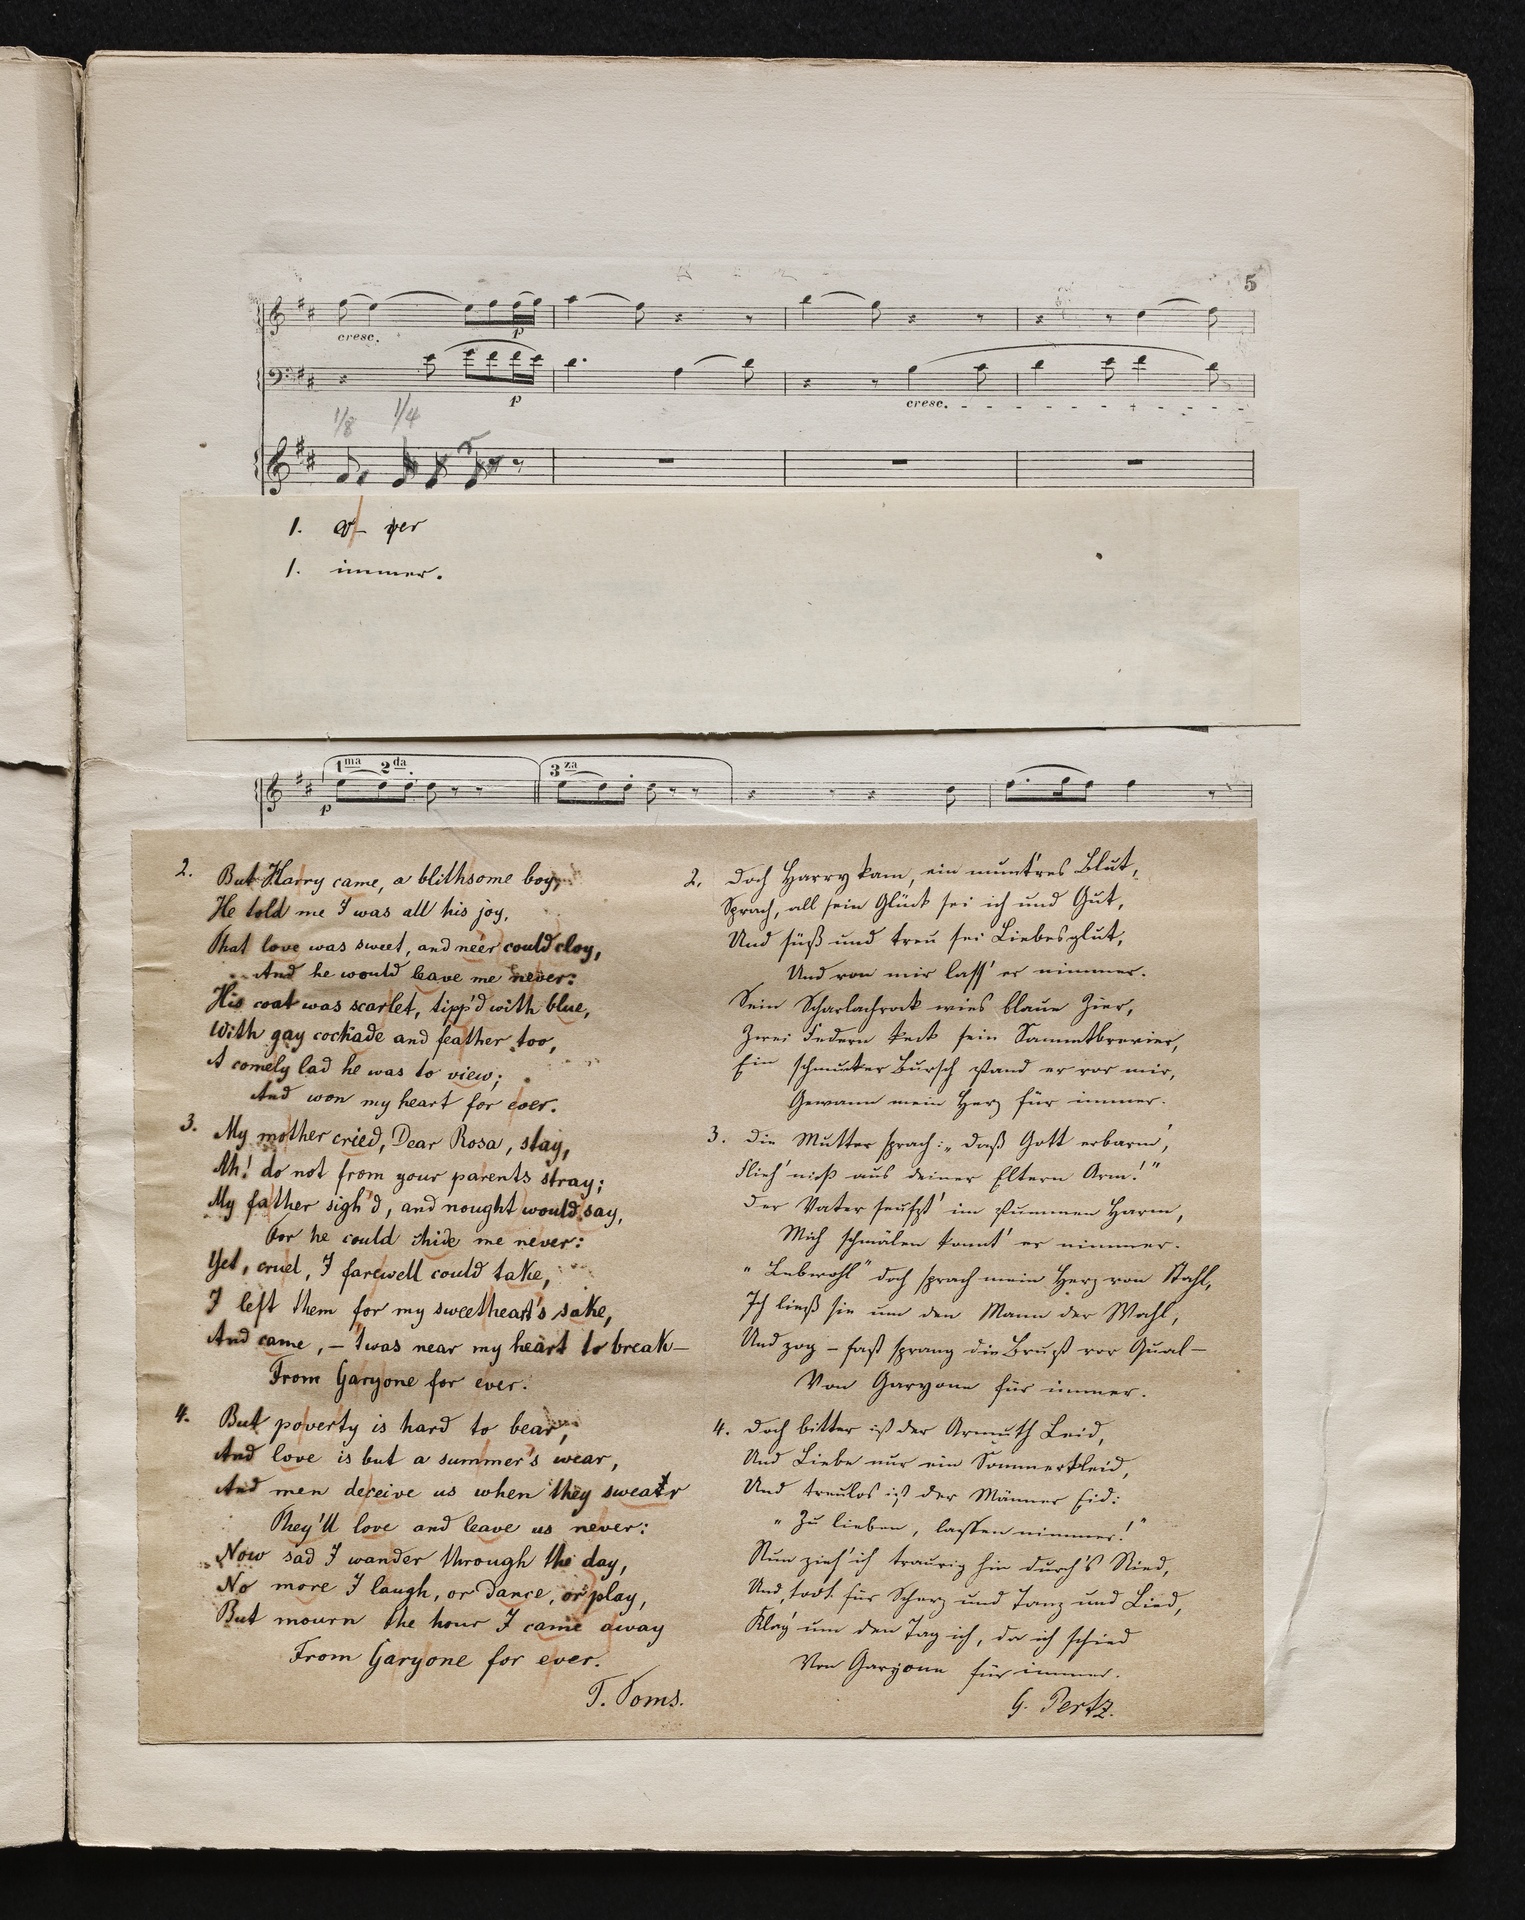 5
cresc.
p
p
cresc.
1/8 1/4
1. ver
1. immer.
1ma 2da 3za
p
2. But Harry came, a blithsome boy,
He told me I was all his joy,
That love was sweet, and ne'er could cloy,
And he would leave me never:
His coat was scarlet, tipp'd with blue,
With gay cockade and feather too,
A comely lad he was to view;
And won my heart for ever.
3. My mother cried, Dear Rosa, stay,
Ah! do not from your parents stray;
My father sigh'd, and nought would say,
For he could chide me never:
Yet, cruel, I farewell could take,
I left them for my sweetheart's sake,
And came, – 'twas near my heart to break –
From Garyone for ever.
4. But poverty is hard to bear,
And love is but a summer's wear,
And men deceive us when they swear
They'll love and leave us never:
Now sad I wander through the day,
No more I laugh, or dance, or play,
But mourn the hour I came away
From Garyone for ever.
T. Toms.
2. Doch Harry kam, ein muntres Blut,
Sprach, all sein Glück sei ich und Gut,
Und süß und treu sei Liebesglut,
Und von mir lass' er nimmer.
Sein Scharlachrock wies blaue Zier,
Zwei Federn keck sein Sammtbrevier,
Ein schmucker Bursch stand er vor mir,
Gewann mein Herz für immer.
3. Die Mutter sprach: „Daß Gott erbarm',
Flieh' nicht aus deiner Eltern Arm!"
Der Vater seufzt' im stummen Harm,
Mich schmälen konnt' er nimmer.
„Lebwohl" doch sprach mein Herz von Stahl,
Ich ließ sie um den Mann der Wahl,
Und zog – fast sprang die Brust vor Qual –
Von Garyone für immer.
4. Doch bitter ist der Armuth Leid,
Und Liebe nur ein Sommerkleid,
Und treulos ist der Männer Eid:
„Zu lieben, lassen nimmer!"
Nun zieh' ich traurig hin durch's Ried,
Und, todt für Scherz und Tanz und Lied,
Klag' um den Tag ich, da ich schied
Von Garyone für immer.
G. Pertz.